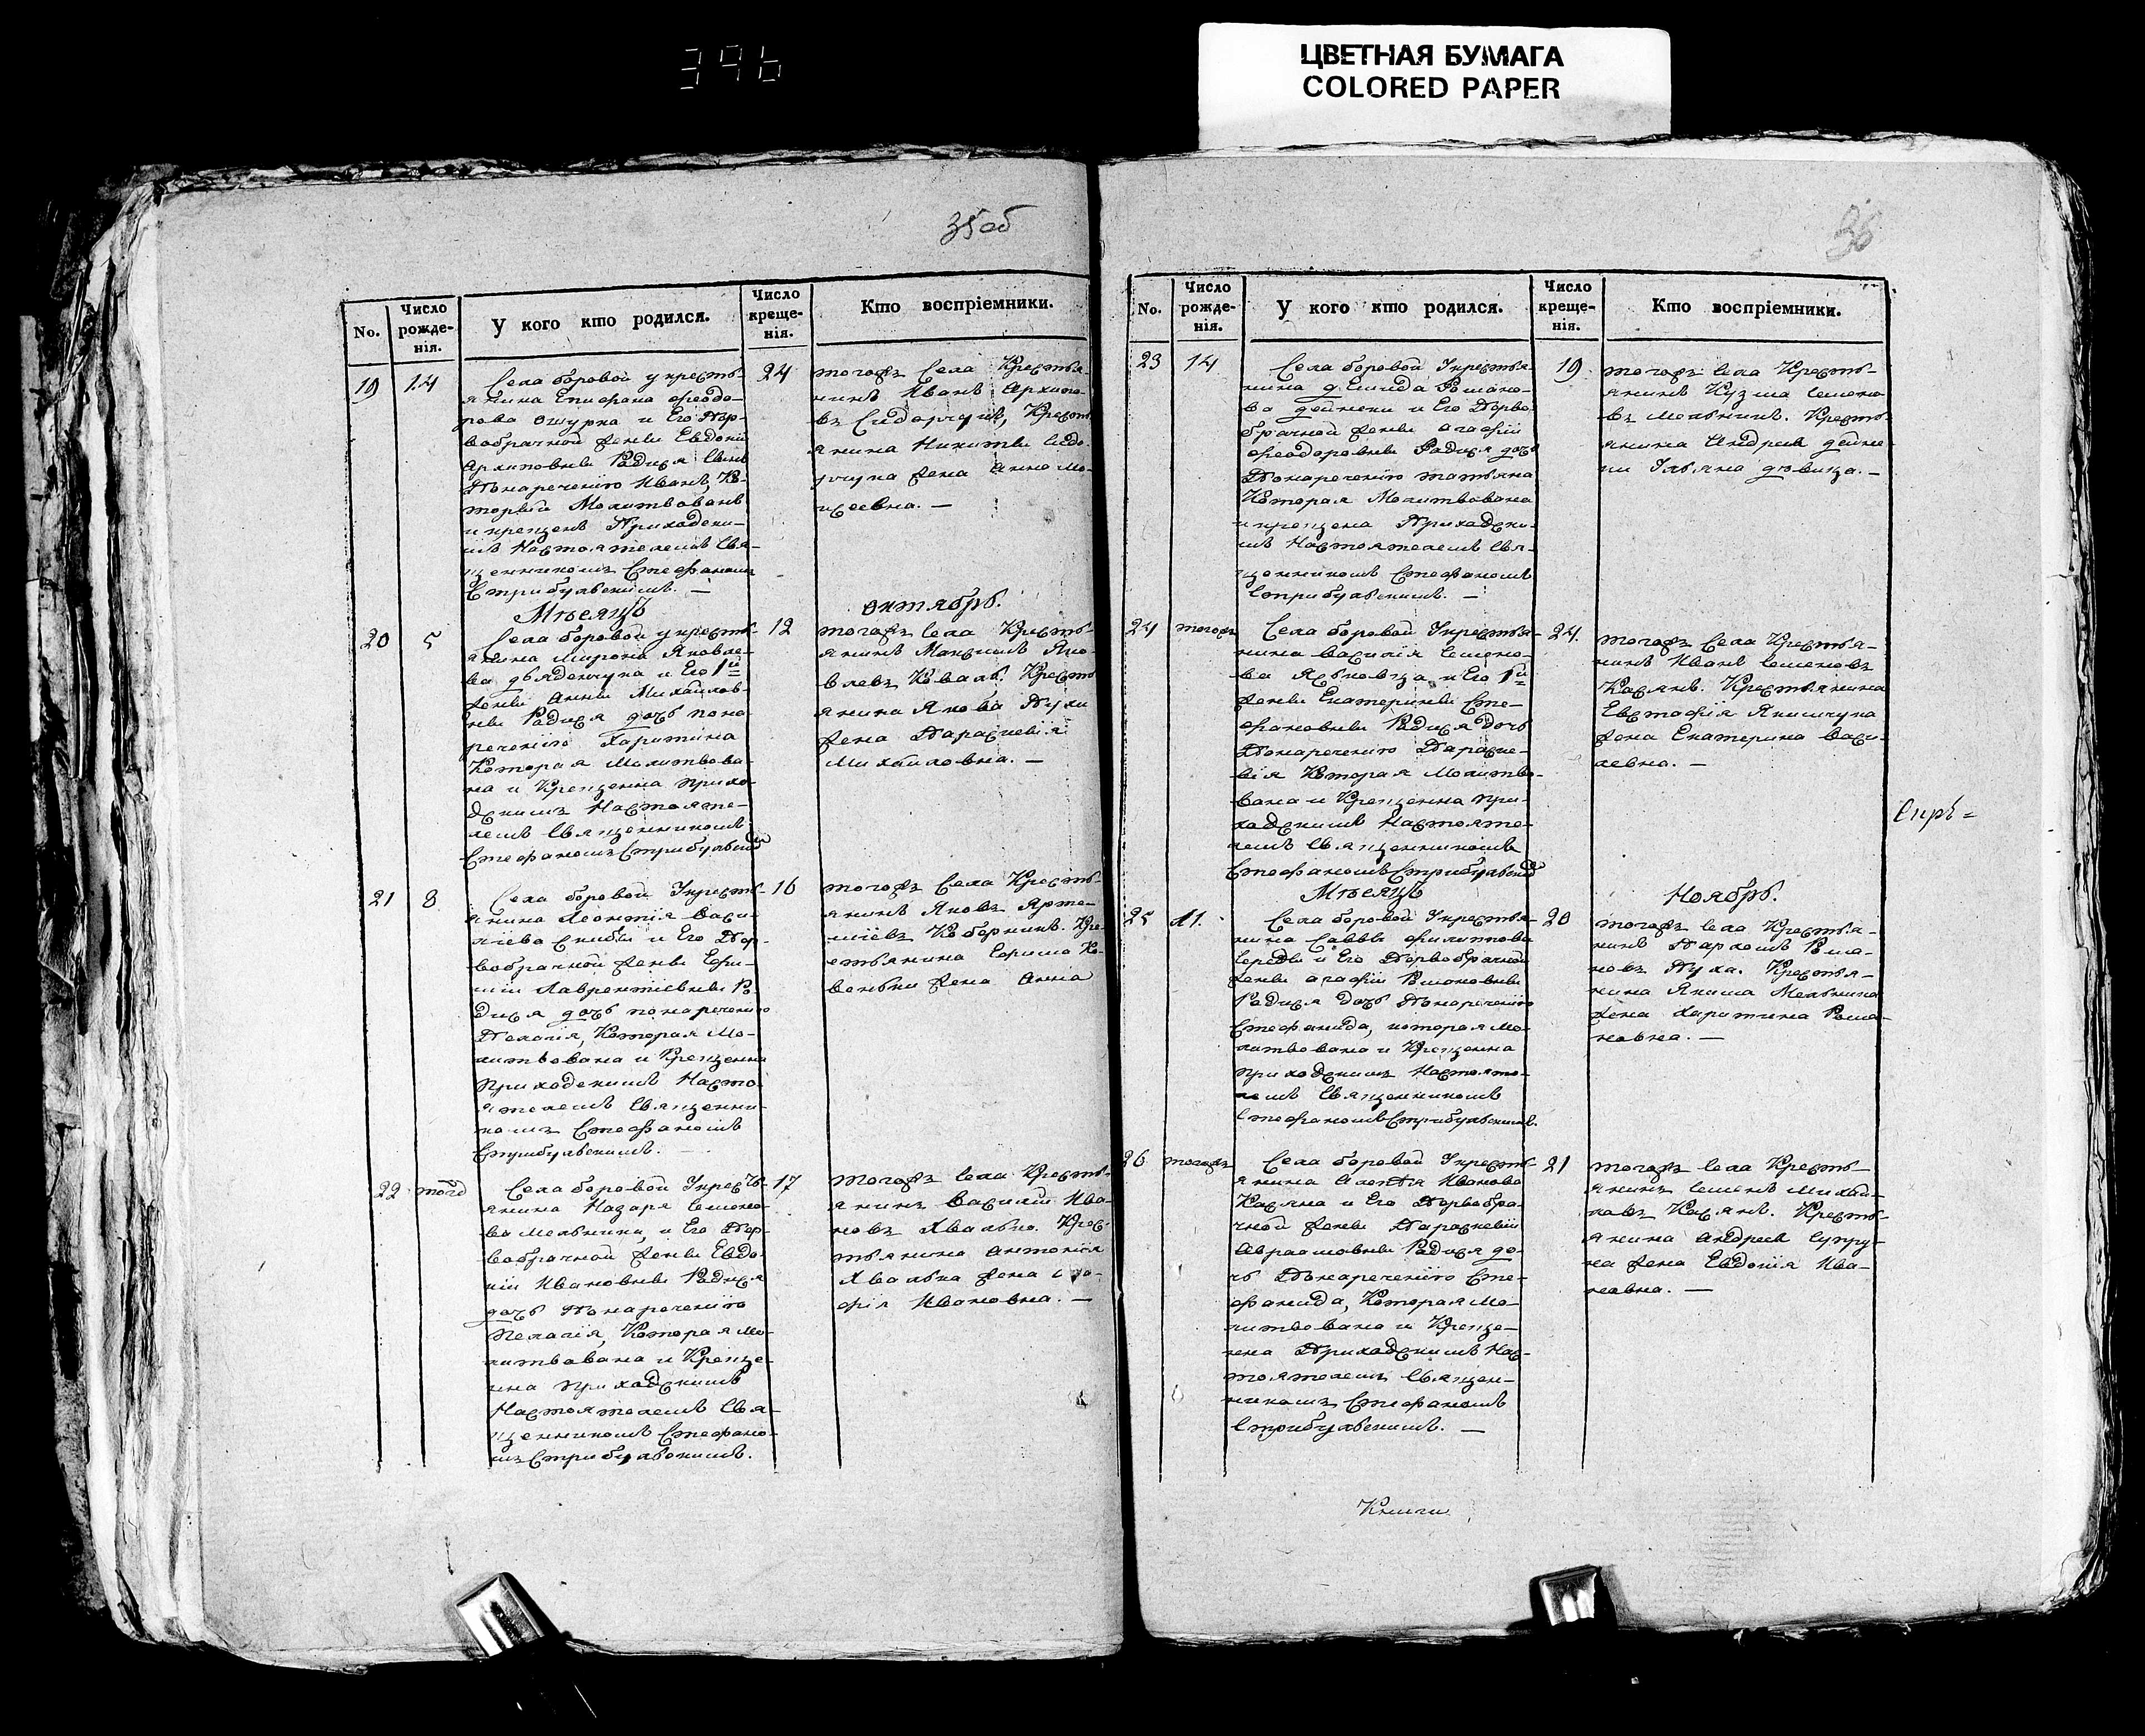 396
ЦВЕТНАЯ БУМАГА
COLORED PAPER
35об
No.
Число рожде-нія.
У кого кто родился.
Число креще-нія.
Кто воспріемники.
19
14
Села боровой у кресть-
янина Епифана Феодо-
рова и Его Пер-
вобрачной жены Евдокіи
Архиповны Родился сынъ
Понареченію Иванъ, Ко-
торый Молитвованъ
и крещенъ Приходски-
мъ Настоятелемъ Свя-
щенникомъ Стефаномъ
Стрибульскимъ. —
24
тогожъ Села Крестья-
нинъ Иванъ Архипо-
въ Сидорчукъ, Кресть
янина Никиты Сидо-
рчука жена Анна Мо-
исеевна. —
Мѣсяцъ
октябрь.
20
5
Села боровой у кресть-
янина Мирона Яковле-
ва дьяденчука и Его 1й
жены Анны Михайлов-
ны Родися дочь пона
реченію Харитина
Которая Молитвова-
на и Крещенна прихо-
дскимъ Настояте-
лемъ Священникомъ
Стефаномъ Стрибульским
12
тогожъ села Кресть-
янинъ Максимъ Яко-
влевъ Коваль. Кресть
янина Якова Пухи
жена Параскевія
Михайловна. —
21
8
Села боровой Укресть-
янина Леонтія Васи-
лієва скибы и Его Пер-
вобрачной жены Ефи-
міи Лаврентіевны Ро
дися дочь по нареченію
Пелагія, Которая Мо-
литвована и Крещенна
приходскимъ Насто-
ятелемъ Священни-
комъ Стефаномъ
Стрибульскимъ. —
16
тогожъ Села Кресть-
янинъ Яковъ Арте-
міевъ Коборникъ. Кре-
стьянина Ефима Ко-
веньки жена Анна
22
тогд
Села боровой Укресть-
янина Назара Семено-
ва мельника, и Его Пер-
вобрачной жены Евдо-
кіи Ивановны Родися
дочь Понареченію
Пелагія, Которая мо-
литвована и Креще-
нна приходскимъ
Настоятелемъ Свя-
щенникомъ Стефано-
мъ Стрибульскимъ.
17
тогожъ села Кресть-
янинъ Василій Ива-
новъ Хвалько. Крес-
тьянина Антонія
Хвалька жена
фія Ивановна. —
36
No.
Число рожде-нія.
У кого кто родился.
Число креще-нія.
Кто воспріемники.
23
14
Села боровой Укрестья
нина Романо-
ва дейнеки и Его Перво
брачной жены Агафіи
Феодоровны Родися дочь
Понареченію татьяна
Которая Молитвована
и крещена Приходски-
мъ Настоятелемъ Свя-
щенникомъ Стефаномъ
Стрибульскимъ. —
19
тогожъ села Кресть-
янинъ Кузма Семено-
въ Мельникъ. Кресть
янина Андрея дейне-
ки Ульяна дѣвица. —
24
тогожъ
Села боровой Укрестья-
нина Василія Семено-
ва и Его 1й
жены Екатерины Сте-
фановны Родися дочь
Понареченію Параске-
вія Которая Молитво-
вана и Крещенна при-
ходскимъ Настояте-
лемъ Священникомъ
Стефаномъ Стрибульским
24.
тогожъ Села Крестья-
нинъ Иванъ Семеновъ
Касянъ. Крестьянина
Евстафія Якимчука
жена Екатерина Васи-
левна. —
Мѣсяцъ
Ноябрь.
25
11.
Села боровой Укрестья-
нина Саввы Филиппова
середы и Его Первобрачной
жены Агафіи Романовны
Родися дочь Понареченію
Стефанида, которая мо-
литвована и Крещенна
приходскимъ Настояте-
лемъ Священникомъ
Стефаномъ Стрибульскимъ.
20
тогожъ села Крестья-
нинъ Рома-
новъ Пуха. Крестья-
нина Якима Мельника
жена Харитина Рома-
новна. —
26
тогожъ
Села боровой Укресть-
янина Иванова
Касяна и Его Первобра-
чной жены Параскевіи
Авраамовны Родися до-
чь Понареченію Сте-
фанида, Которая Мо-
литвована и Креще-
нна Приходскимъ Нас-
тоятелемъ Священ-
никомъ Стефаномъ
Стрибульскимъ. —
21
тогожъ села Кресть-
янинъ Семенъ Михай-
ловъ Касянъ. Кресть-
янина Андрея Супру-
на жена Евдокія Ива-
новна. —
Книги